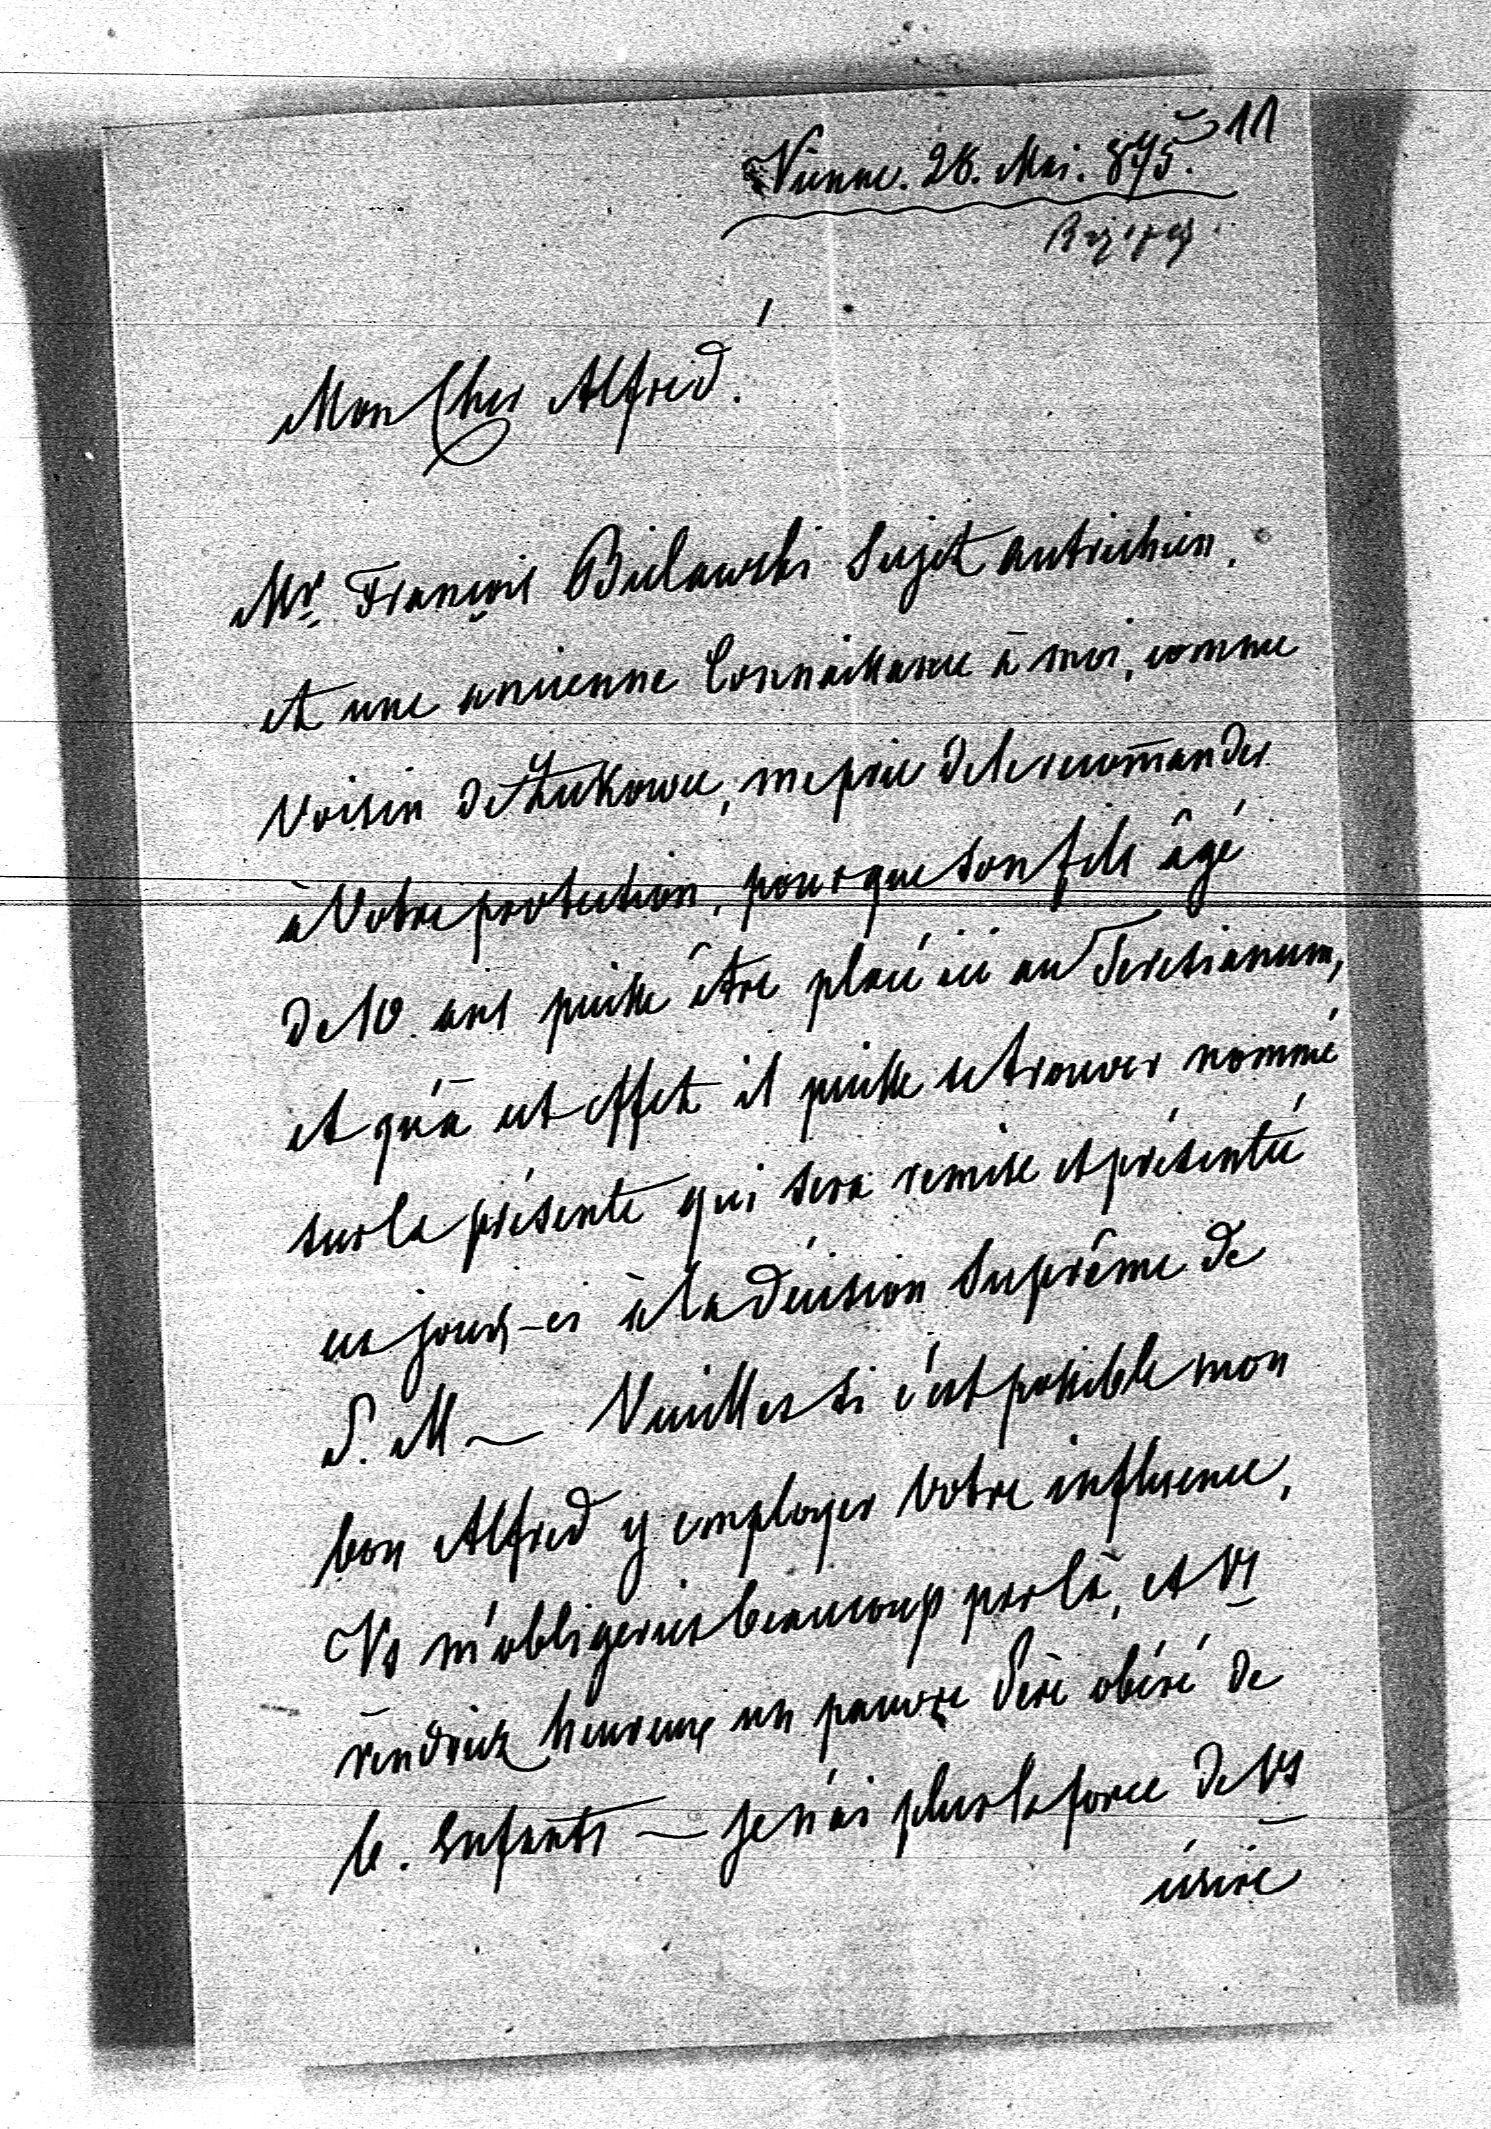 11
Vienne. 28. Mai. 875.
Mon Cher Alfred!
Mr. François Bielawski Sujet autrichien.
et une ancienne Connaissance à moi, comme
Voisin de Żukowce, me prie de le recom̄ander
à Votre protection, pour que son fils âgé
de 10. ans puisse être placé ici au Teresianum,
et qu'à cet effet il puisse se trouver nommé
sur la présente qui sera remise et présentée
ces jours-ci à la décision Suprême de
S. M — Veuillez si c'est possible mon
bon Alfred y employer Votre influence,
Vs m'obligeriez beaucoup par là, et Vs
rendriez heureux un pauvre Père obéré de
6. Enfants — je n'ai plus la force de Vs
écrire